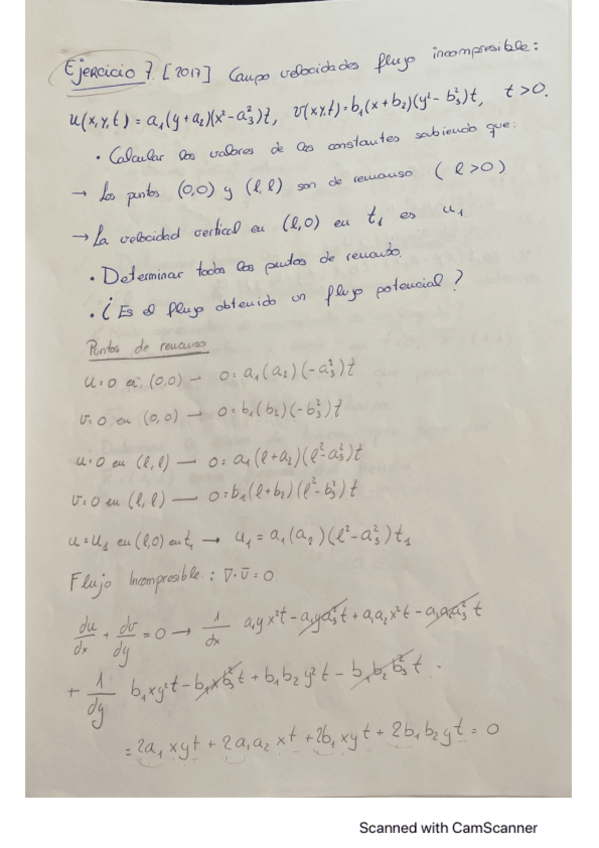 Ejercicio 7 [2017] Campo velocidades flujo incompresible:
u(x,y,t) = a₁(y+a₂)(x²-a₃²)t, v(x,y,t)=b₁(x+b₂)(y²-b₃²)t, t>0.
• Calcular los valores de las constantes sabiendo que:
→ Los puntos (0,0) y (l,l) son de remanso (l>0)
→ La velocidad vertical en (l,0) en t₁ es u₁
• Determinar todos los puntos de remanso.
• ¿Es el flujo obtenido un flujo potencial?
Puntos de remanso
u=0 en (0,0) — 0=a₁(a₂)(-a₃²)t
v=0 en (0,0) → 0=b₁(b₂)(-b₃²)t
u=0 en (l,l) — 0=a₁(l+a₂)(l²-a₃²)t
v=0 en (l,l) — 0=b₁(l+b₂)(l²-b₃²)t
u=u₁ en (l,0) en t₁ → u₁=a₁(a₂)(l²-a₃²)t₁
Flujo Incompresible: ∇·ū=0
du/dx + dv/dy =0 → 1/dx a₁yx²t - a₁ya₃²t + a₁a₂x²t - a₁a₂a₃²t
+ 1/dy b₁xy²t - b₁xb₃²t + b₁b₂y²t - b₁b₂b₃²t.
=2a₁xyt + 2a₁a₂xt + 2b₁xyt + 2b₁b₂yt = 0
Scanned with CamScanner